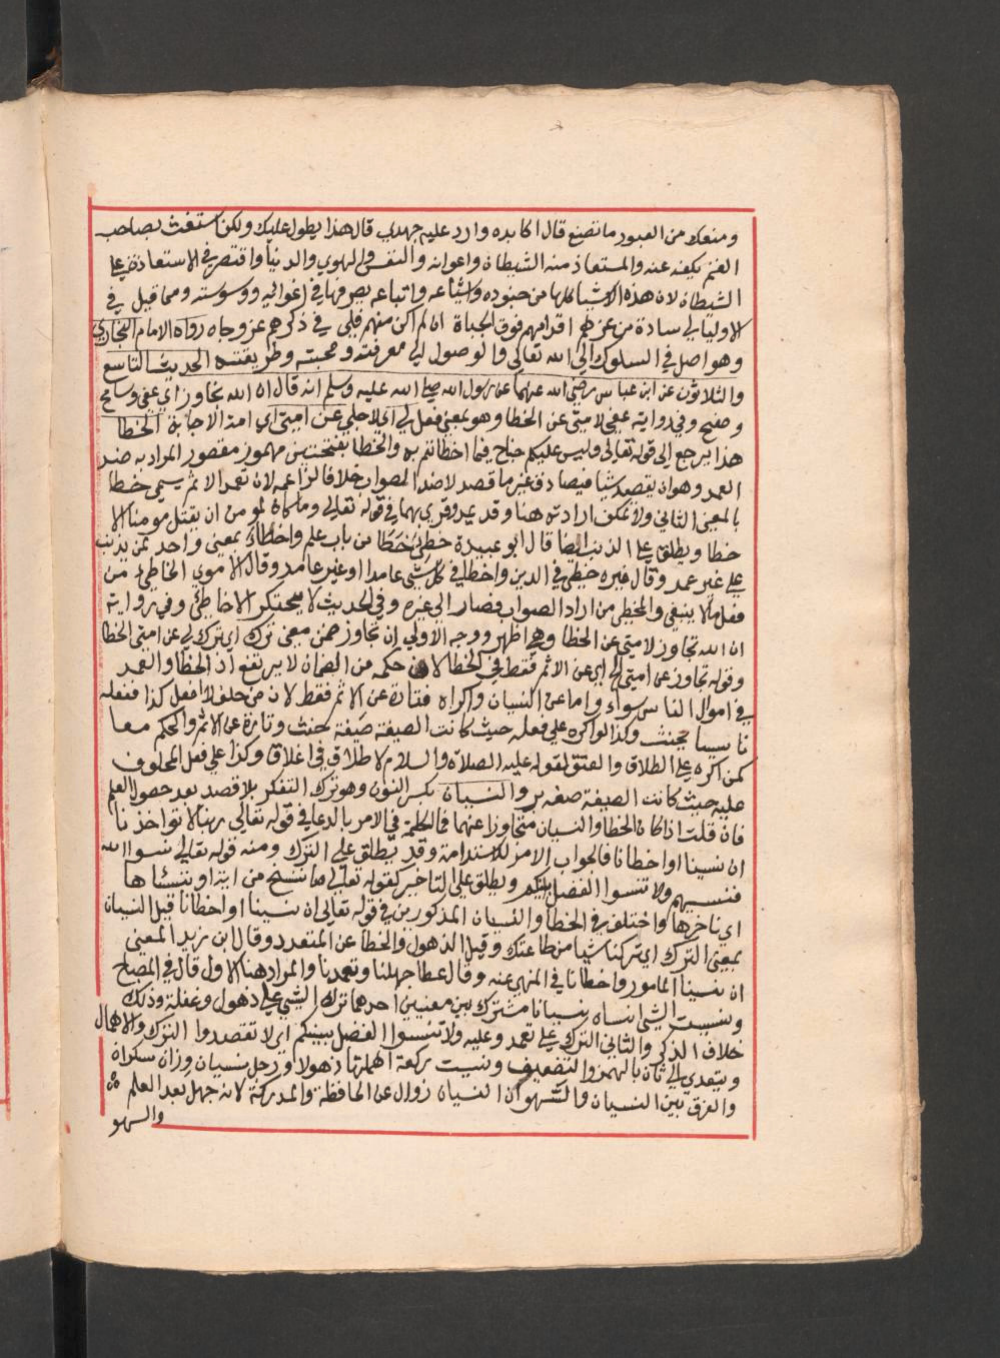 ومنعك من العبور ما تصنع قال اكابده وارد عليه جهدي قال هذا يطول عليك ولكن استغث بصاحب
الغنم يكفه عنه والمستعاذ منه الشيطان واعوانه والنفس والهوي والدنيا واقتصر في الاستعاذة على
الشيطان لان هذه الاشيا كلها من جنوده واشياعه واتباعه يصرفها في اغوائه ووسوسته ومما قيل في
الاوليا لي سادة من عزهم اقدامهم فوق الجباة ان لم اكن منهم فلي في ذكرهم عز وجاه رواه الامام البخاري
وهو اصل في السلوك الى الله تعالي والوصول لي معرفته ومحبته وطريقته الحديث التاسع
والثلاثون عن ابن عباس رضي الله عنهما عن رسول الله صلى الله عليه وسلم انه قال ان الله تجاوز اي عفى وسامح
وصفح وفي رواية عفي لامتي عن الخطا وهو بمعني فعل لي اي لاجلي عن امتي اي امة الاجابة الخطا
هذا يرجع الى قوله تعالى وليس عليكم جناح فيما اخطاتم به والخطا بفتحتين مهموز مقصور المراد به ضد
العمد وهو ان يقصد شيا فيصادف غير ما قصد لا ضد الصواب خلافا لزاعمه لان تعمد الاثم يسمى خطا
بالمعني الثاني ولا يمكن ارادته هنا وقد يمد وقري بهما في قوله تعالى وما كان لمومن ان يقتل مومنا الا
خطا ويطلق على الذنب ايضا قال ابو عبيدة خطئ خطا من باب علم واخطا بمعني واحد لمن يذنب
على غير عمد وقال غيره خطئ في الدين واخطا في كل شي عامدا او غير عامد وقال الاموي الخاطئ من
فعل ما لا ينبغي والمخطي من اراد الصواب فصار الى غيره وفي الحديث لا يحتكر الا خاطئ وفي رواية
ان الله تجاوز لامتي عن الخطا وهي اظهر ووجه الاولي ان تجاوز ضمن معني ترك اي ترك لي عن امتي الخطا
وقوله تجاوز عن امتي الخ اي عن الاثم فقط في الخطا لان حكمه من الضمان لا يرتفع اذ الخطا والعمد
في اموال الناس سواء واما عن النسيان والاكراه فتارة عن الاثم فقط لان من حلف لا افعل كذا ففعله
ناسيا يحنث وكذا لو اكره على فعله حيث كانت الصيغة صيغة حنث وتارة عن الاثم والحكم معا
كمن اكره على الطلاق والعتق لقوله عليه الصلاة والسلام لا طلاق في اغلاق وكذا على فعل المحلوف
عليه حيث كانت الصيغة صيغة بر والنسيان بكسر النون وهو ترك التفكر بلا قصد بعد حصول العلم
فان قلت اذا كان الخطا والنسيان متجاوزا عنهما فما الحكمة في الامر بالدعا في قوله تعالى ربنا لا تواخذنا
ان نسينا او اخطانا فالجواب الامر للاستدامة وقد يطلق على الترك ومنه قوله تعالي نسوا الله
فنسيهم ولا تنسوا الفضل بينكم ويطلق على التاخير كقوله تعالى ما ننسخ من اية او ننسئها
اي نؤخرها واختلف في الخطا والنسيان المذكورين في قوله تعالى ان نسينا او اخطانا قيل النسيان
بمعني الترك اي تركنا شيا من طاعتك وقيل الذهول والخطا عن المتعدد وقال ابن زيد المعني
ان نسينا المامور واخطانا في المنهي عنه وقال عطا جهلنا وتعمدنا والمراد هنا الاول قال في المصباح
ونسيت الشي انساه نسيانا مشترك بين معنيين احدهما ترك الشي على ذهول وغفلة وذلك
خلاف الذكر والثاني الترك على تعمد وعليه ولا تنسوا الفضل بينكم اي لا تقصدوا الترك والاهمال
ويتعدي الى ثان بالهمز والتضعيف ونسيت ركعة اهملتها ذهولا ورجل نسيان وزان سكران
والفرق بين النسيان والسهو ان النسيان زوال عن الحافظة والمدركة لانه جهل بعد العلم
والسهو